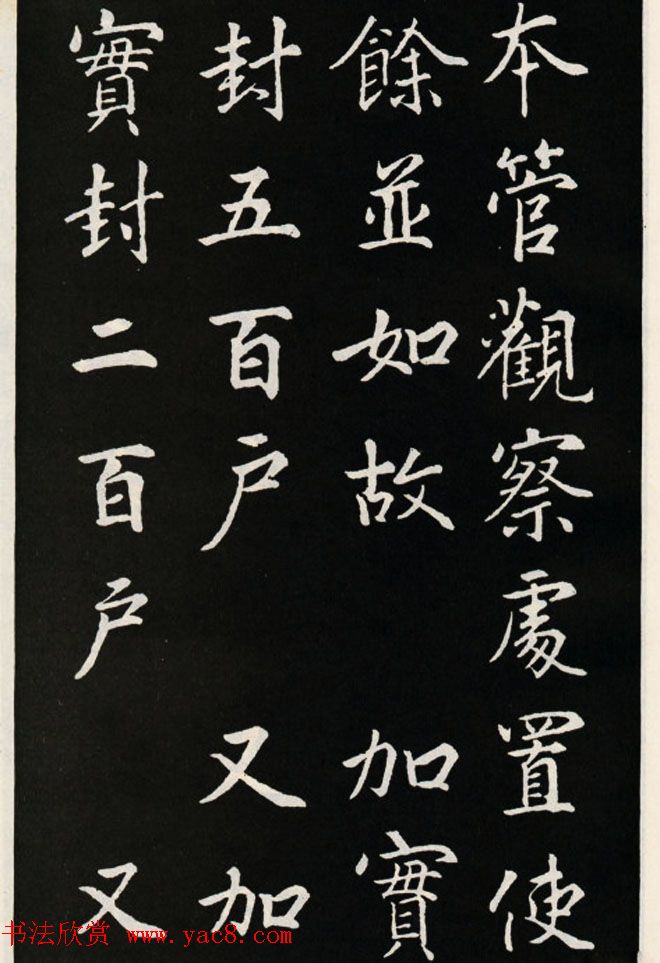 本管觀察處置使
餘並如故 加實
封五百戶 又加
實封二百戶 又
书法欣赏 www.yac8.com